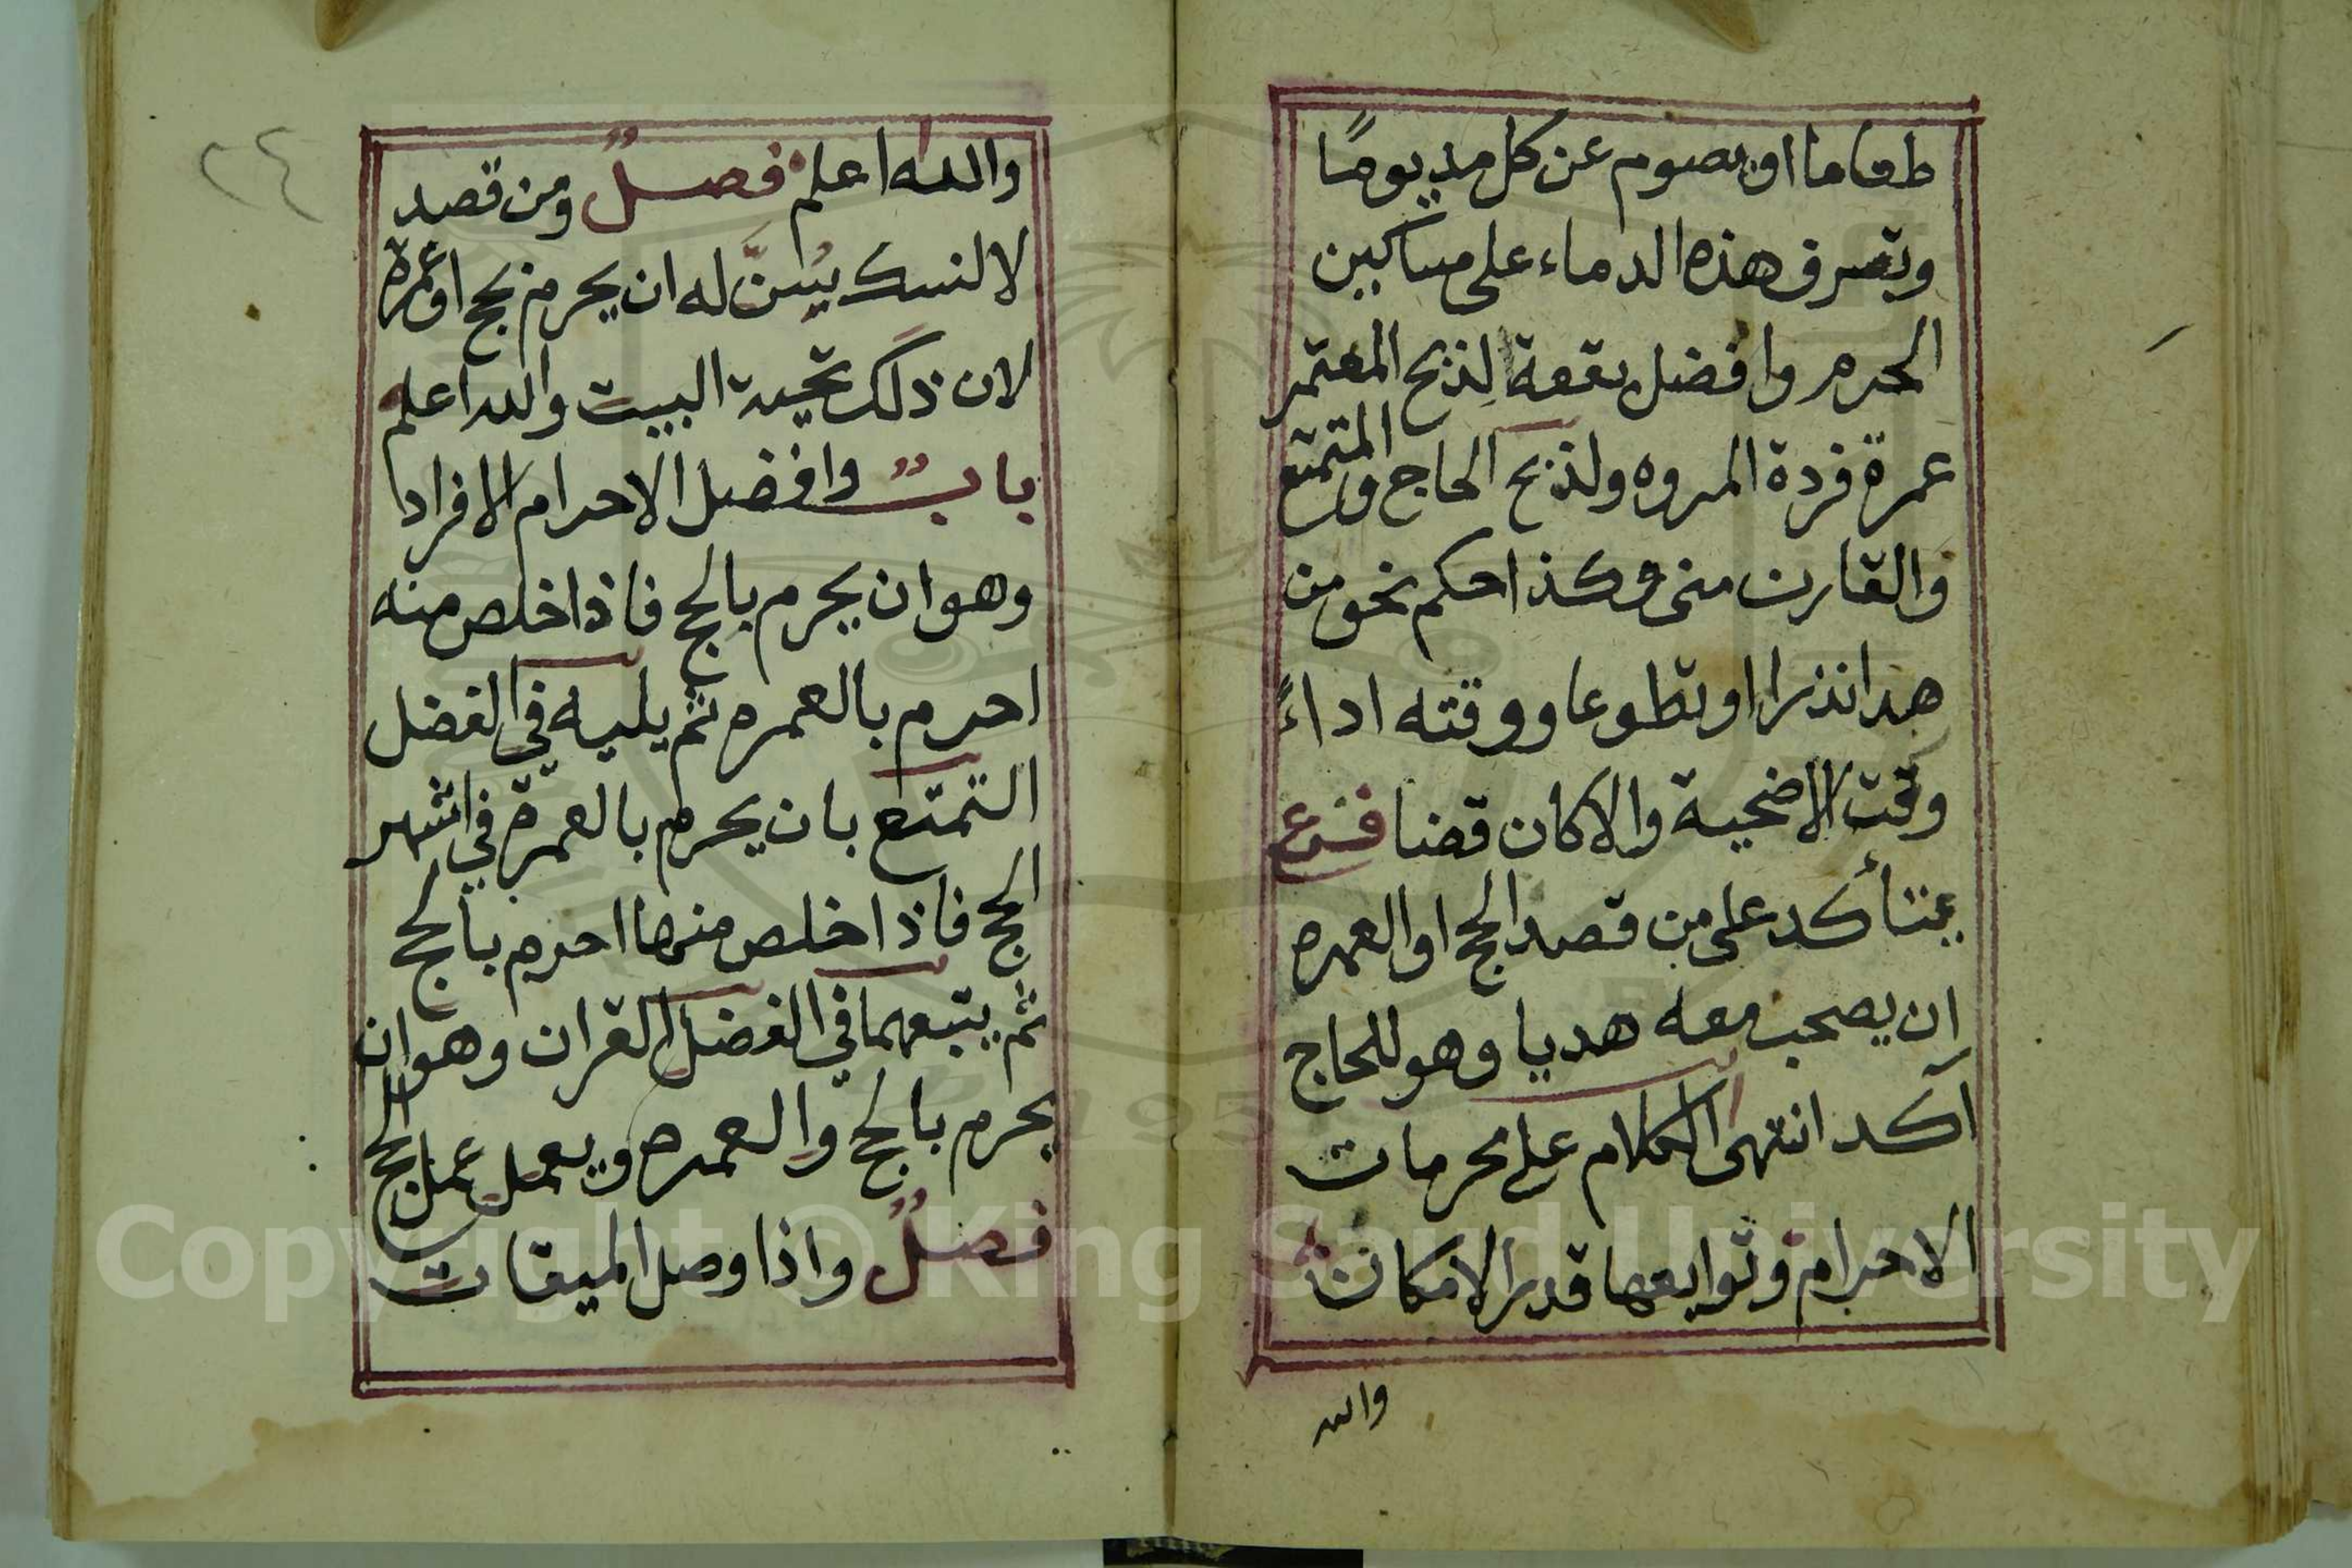 طعاما او يصوم عن كل مد يومًا
وتصرف هذه الدماء على مساكين
الحرم وافضل بقعة لذبح المعتمر
عمرة فردة المروه ولذبح الحاج والمتمتع
والقارن منى وكذا حكم نحو من
هدا نذرا او تطوعا ووقته اداءً
وقت الاضحية والا كان قضا فرع
يتأكد على من قصد الحج او العمره
ان يصحب معه هديا وهو للحاج
آكد انتهى الكلام على محرمات
الاحرام وتوابعها قدر الامكان
والله
٢٤
والله اعلم فصلٌ ومن قصد
لا لنسك يُسَنّ له ان يحرم بحج او عمرة
لان ذلك تحية البيت والله اعلم
بابٌ وافضل الاحرام الافراد
وهو ان يحرم بالحج فاذا خلص منه
احرم بالعمره ثم يليه في الفضل
التمتع بان يحرم بالعمرة في اشهر
الحج فاذا خلص منها احرم بالحج
ثم يتبعهما في الفضل القران وهو ان
يحرم بالحج والعمره ويعمل عمل الحج
فصلٌ واذا وصل الميقات
Copyright © King Saud University
1957